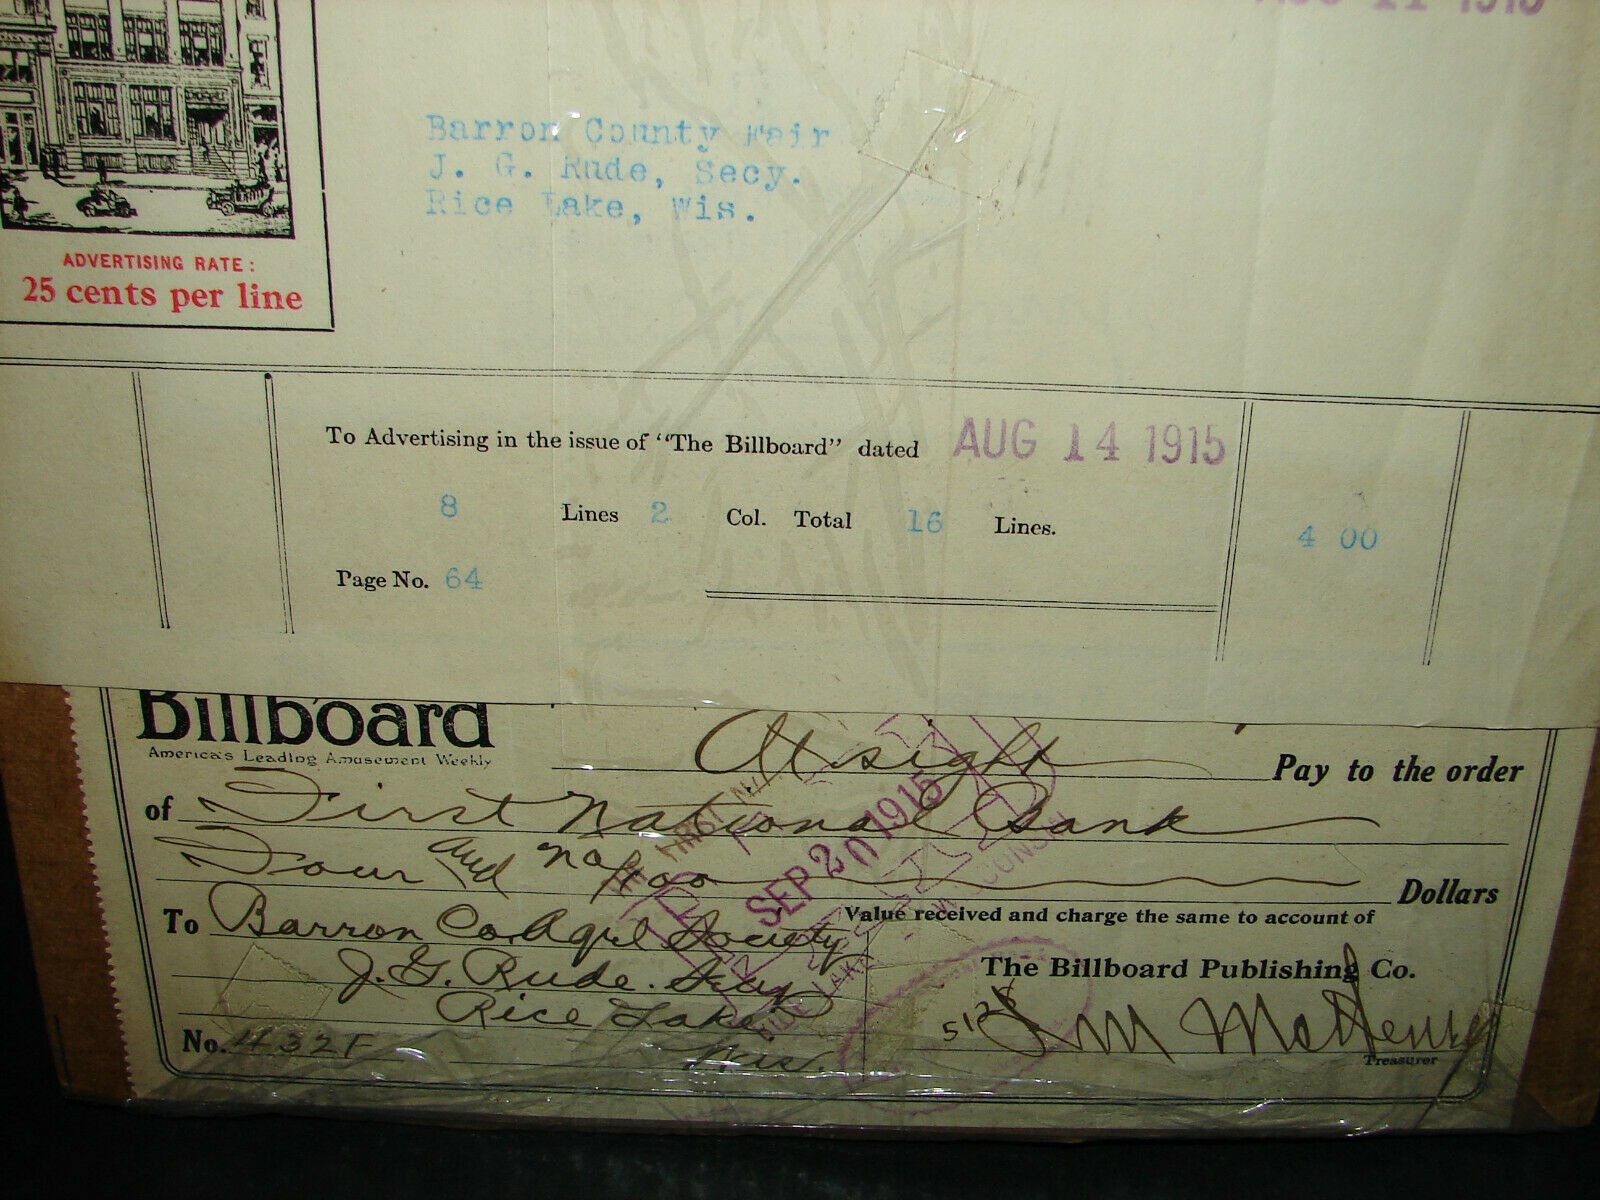 11 1915
Barron County Fair
J. G. Rude, Secy.
Rice Lake, Wis.
ADVERTISING RATE:
25 cents per line
To Advertising in the issue of "The Billboard" dated AUG 14 1915
8 Lines 2 Col. Total 16 Lines. 4 00
Page No. 64
Billboard
America's Leading Amusement Weekly
At sight Pay to the order
of First National Bank
Four and no/100 Dollars
SEP 20 1915
Value received and charge the same to account of
To Barron Co. Agrl Society
J. G. Rude. Secy
The Billboard Publishing Co.
Rice Lake
Wis.
No. 4432F
Treasurer